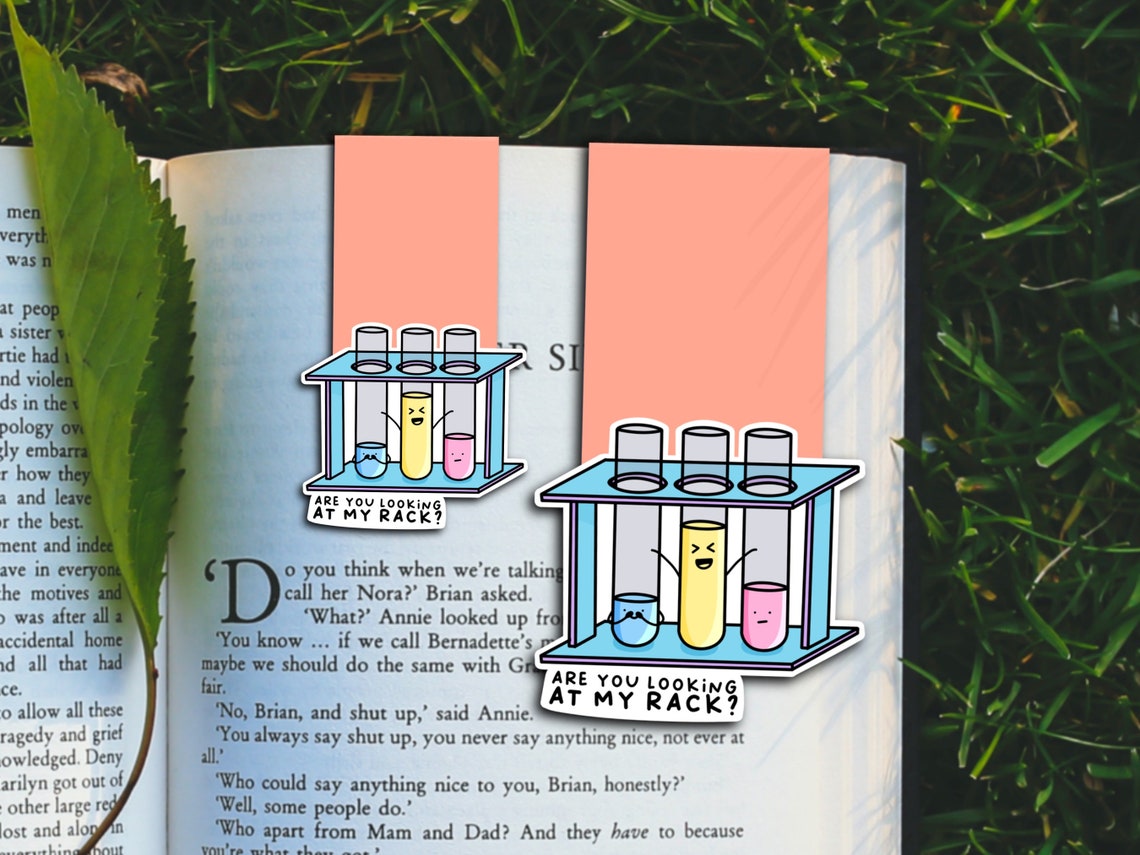 men
veryth
was n
at peop
a sister
rtie had
nd violen
ds in the
pology ov
gly embarra
r how they
a and leave
or the best.
ment and indee
ave in everyone
the motives and
o was after all a
accidental home
nd all that had
ce.
to allow all these
ragedy and grief
owledged. Deny
arilyn got out of
e other large red
lost and alon in
everything bout
ER SI
ARE YOU LOOKING
AT MY RACK?
ARE YOU LOOKING
AT MY RACK?
‘Do you think when we’re talking
call her Nora?’ Brian asked.
‘What?’ Annie looked up fro
‘You know ... if we call Bernadette’s m
maybe we should do the same with Gr
fair.
‘No, Brian, and shut up,’ said Annie.
‘You always say shut up, you never say anything nice, not ever at
all.’
‘Who could say anything nice to you, Brian, honestly?’
‘Well, some people do.’
‘Who apart from Mam and Dad? And they have to because
you’re what they got.’